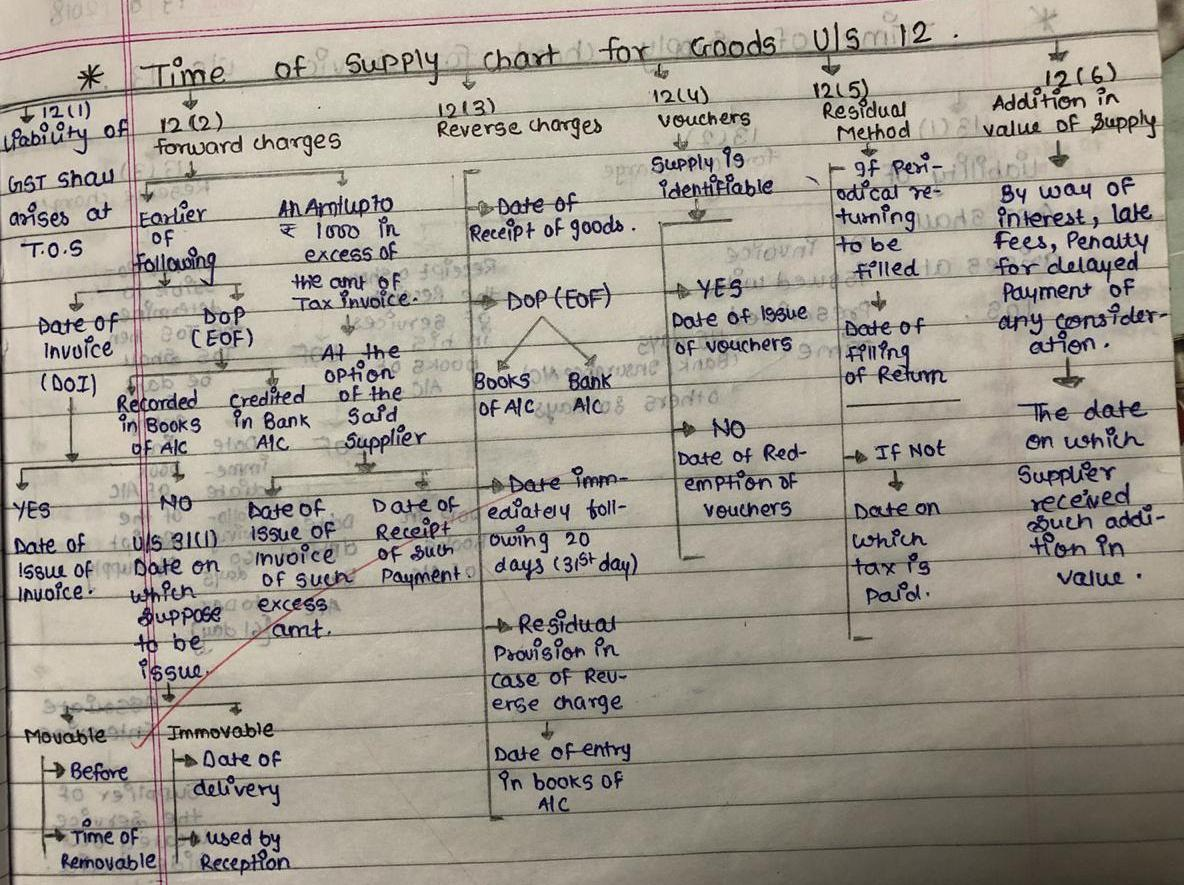 * Time of Supply chart for Goods U/S 12.
12(1)
Liability of
GST shall
arises at
T.O.S
12(2)
forward charges
Earlier
of
following
Date of
Invoice
(DOI)
DOP
(EOF)
Recorded
in Books
of A/C
Credited
in Bank
A/C
YES
Date of
Issue of
Invoice.
NO
U/S 31(1)
Date on
which
suppose
to be
issue.
Movable
Before
Time of
Removable
Immovable
Date of
delivery
used by
Reception
An Amt upto
₹ 1000 in
excess of
the amt of
Tax invoice.
At the
option
of the
Said
Supplier
Date of
Issue of
Invoice
of such
excess
amt.
Date of
Receipt
of such
Payment.
12(3)
Reverse charges
Date of
Receipt of goods.
DOP (EOF)
Books
of A/C
Bank
A/C
Date imm-
ediately foll-
owing 20
days (31st day)
Residual
Provision in
case of Rev-
erse charge
Date of entry
in books of
A/C
12(4)
vouchers
Supply is
identifiable
YES
Date of Issue
of vouchers
NO
Date of Red-
emption of
vouchers
12(5)
Residual
Method
If Peri-
odical re-
turning
to be
filled
Date of
filling
of Return
If Not
Date on
which
tax is
Paid.
12(6)
Addition in
value of Supply
By way of
interest, late
Fees, Penalty
for delayed
Payment of
any consider-
ation.
The date
on which
Supplier
received
such addi-
tion in
value.